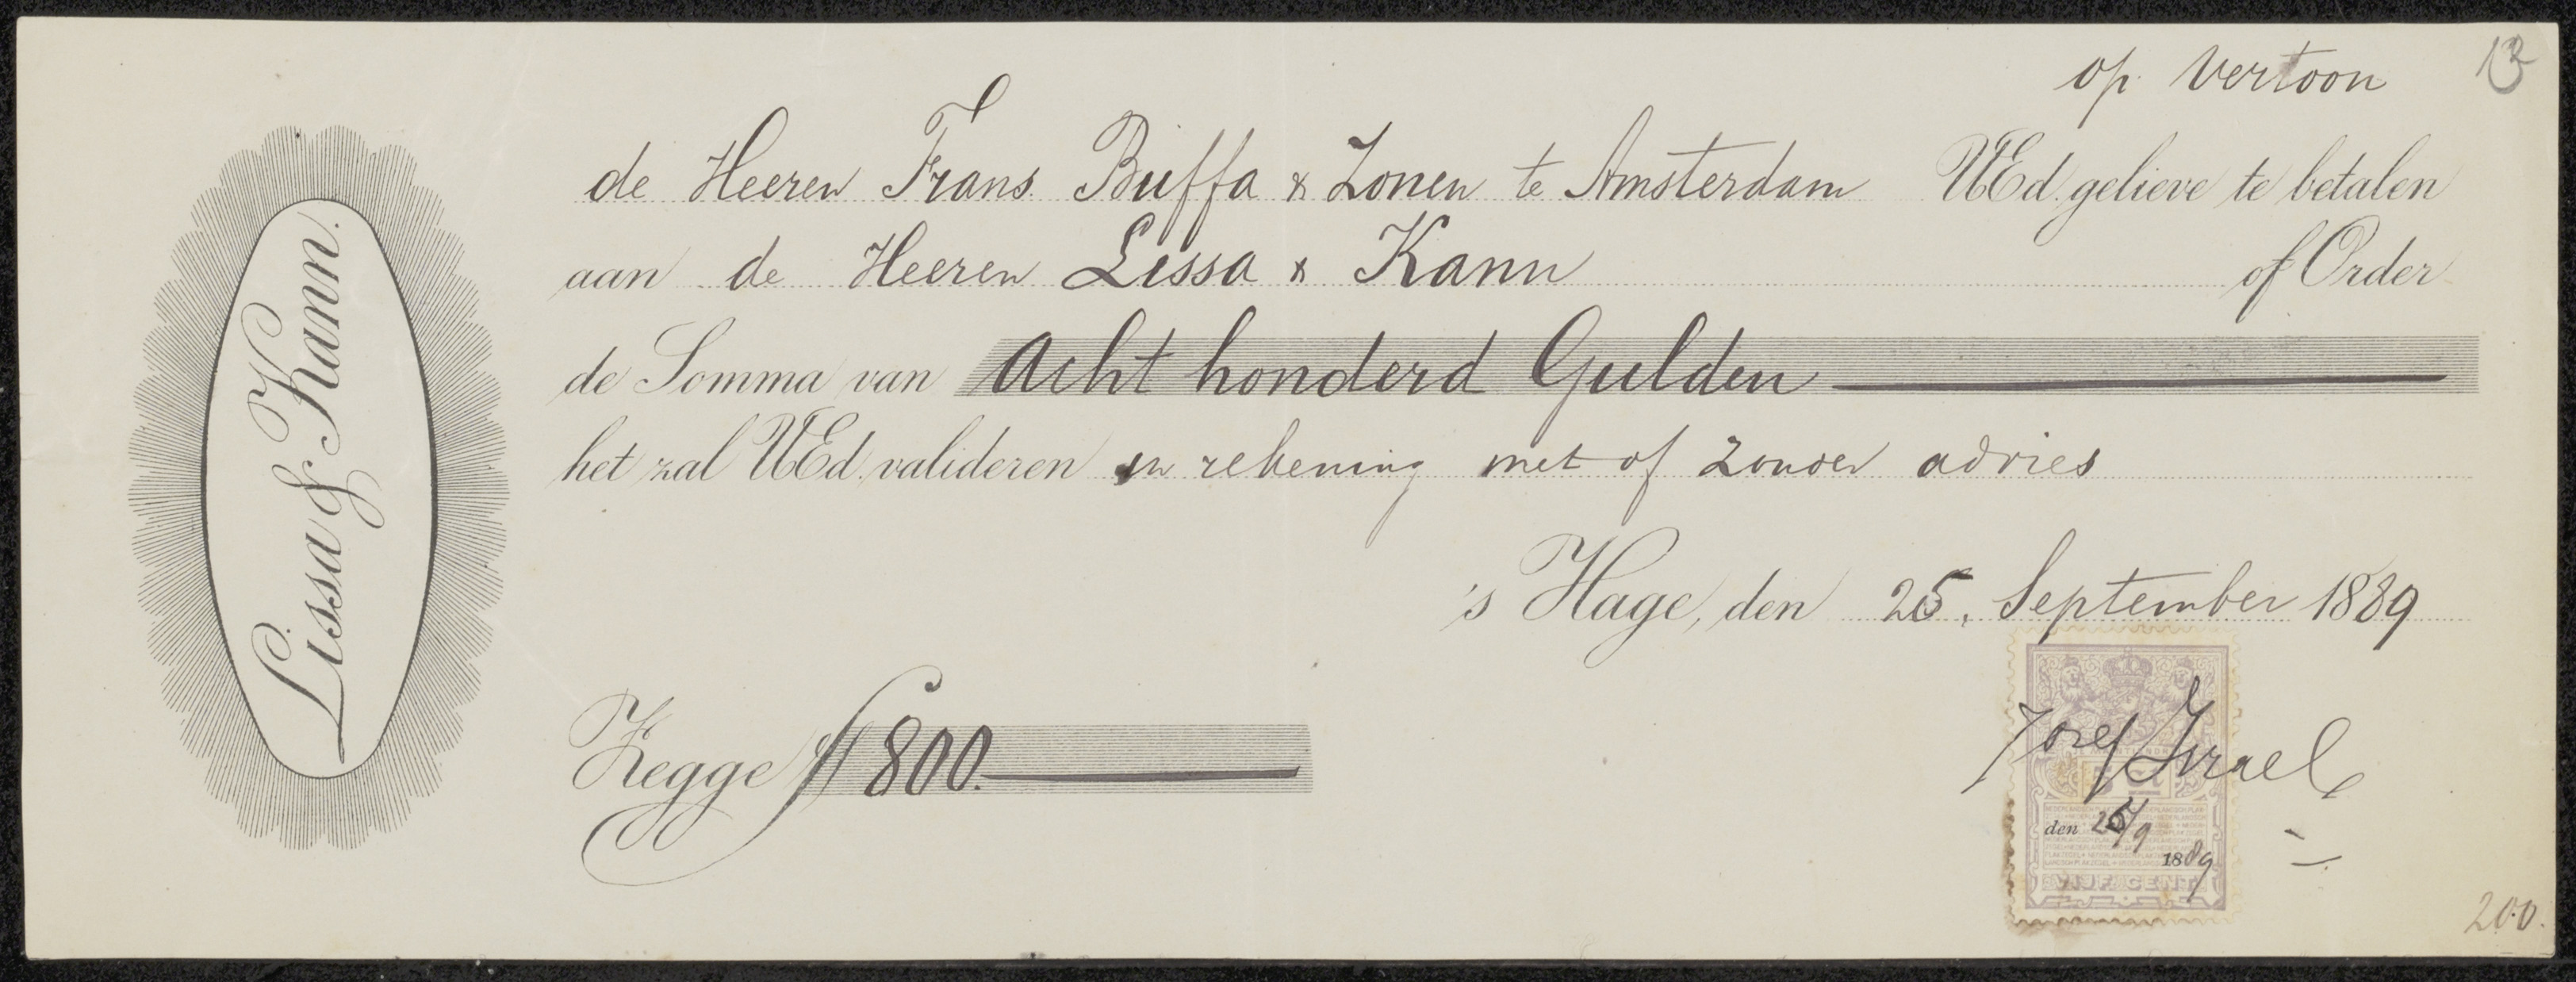 13
op vertoon
de Heeren Frans Buffa & Zonen te Amsterdam UEd. gelieve te betalen
aan de Heeren Lissa & Kann of Order
de Somma van Acht honderd Gulden
het zal UEd. valideren in rekening met of zonder advies
's Hage, den 25. September 1889
Zegge ƒ 800.
Jozef Israels
5 Ct
den 25/9
1889
VIJF CENT
200.
Lissa & Kann.